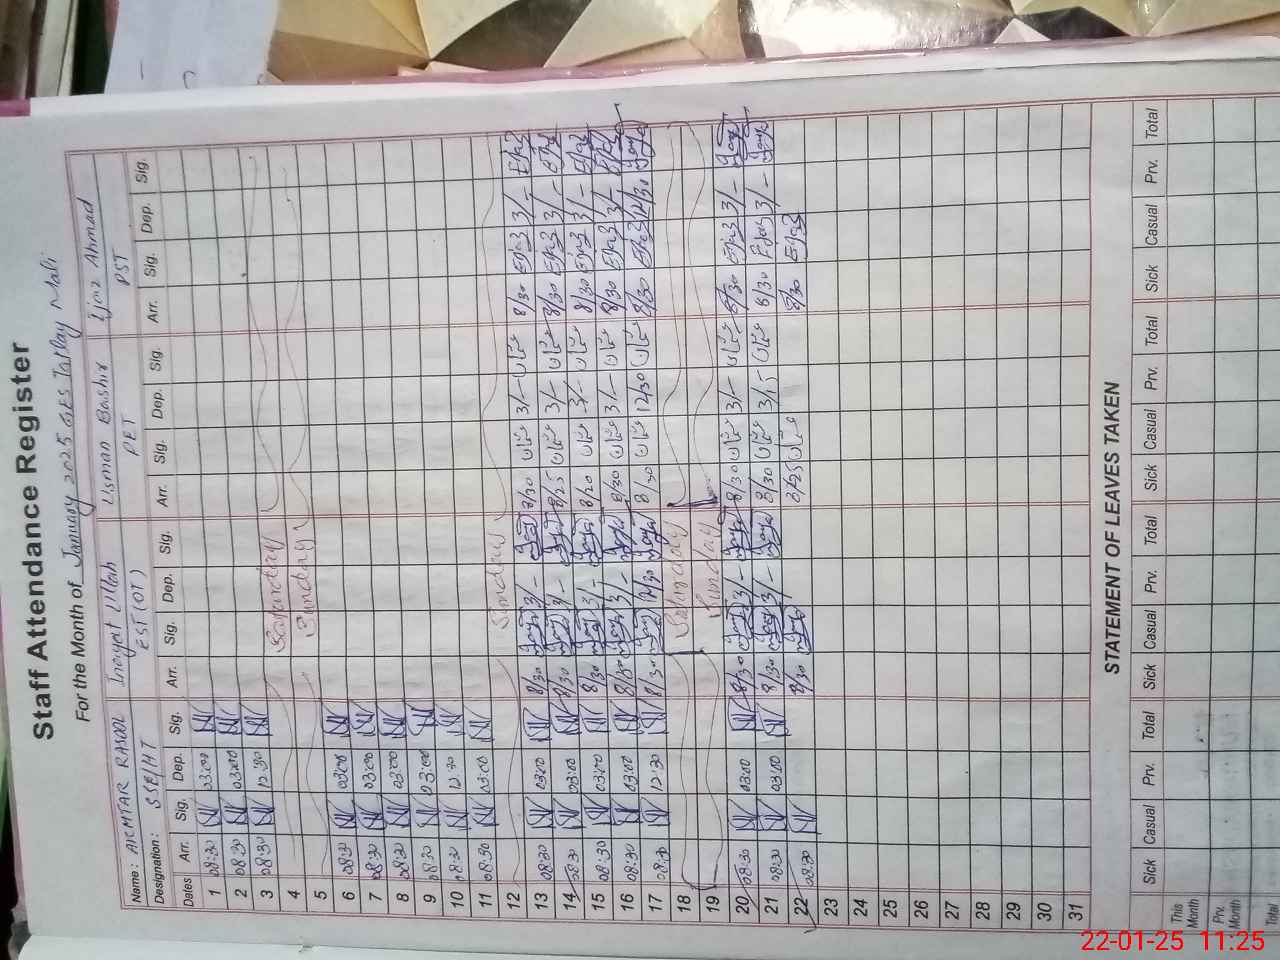 Staff Attendance Register
For the Month of January 2025 GPS
Name: AKHTAR RASOOL Inayat Ullah Usman Bashir Ijaz Ahmad
Designation: SSE/HT EST (OT) PET PST
Dates Arr. Sig. Dep. Sig. Arr. Sig. Dep. Sig. Arr. Sig. Dep. Sig. Arr. Sig. Dep. Sig.
1 08:30 03:00
2 08:30 03:00
3 08:30 12:30
4 Saturday
5 Sunday
6 08:30 03:00
7 08:30 03:00
8 08:30 03:00
9 08:30 03:00
10 08:30 12:30
11 08:30 03:00
12 Sunday
13 08:30 03:00 8/30 3/- 8/20 3/- 8/30 Ejaz 3/- Ejaz
14 08:30 03:00 8/30 3/- 8/25 3/- 8/30 Ejaz 3/- Ejaz
15 08:30 03:00 8/30 3/- 8/20 3/- 8/30 Ejaz 3/- Ejaz
16 08:30 03:00 8/30 3/- 8/30 3/- 8/30 Ejaz 3/- Ejaz
17 08:30 12:30 8/30 12/30 8/30 12/30 8/30 Ejaz 12/30
18 Saturday
19 Sunday
20 08:30 03:00 8/30 3/- 8/30 3/- 8/30 Ejaz 3/-
21 08:30 03:00 8/30 3/- 8/30 3/15 8/30 Ejaz 3/-
22 08:30 8/30 8/25 8/30 Ejaz
23
24
25
26
27
28
29
30
31
STATEMENT OF LEAVES TAKEN
Sick Casual Prv. Total Sick Casual Prv. Total Sick Casual Prv. Total Sick Casual Prv. Total
This Month
Prv. Month
Total
22-01-25 11:25